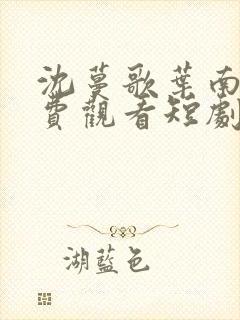 沈蔓歌葉南
費觀看短劇
湖藍色